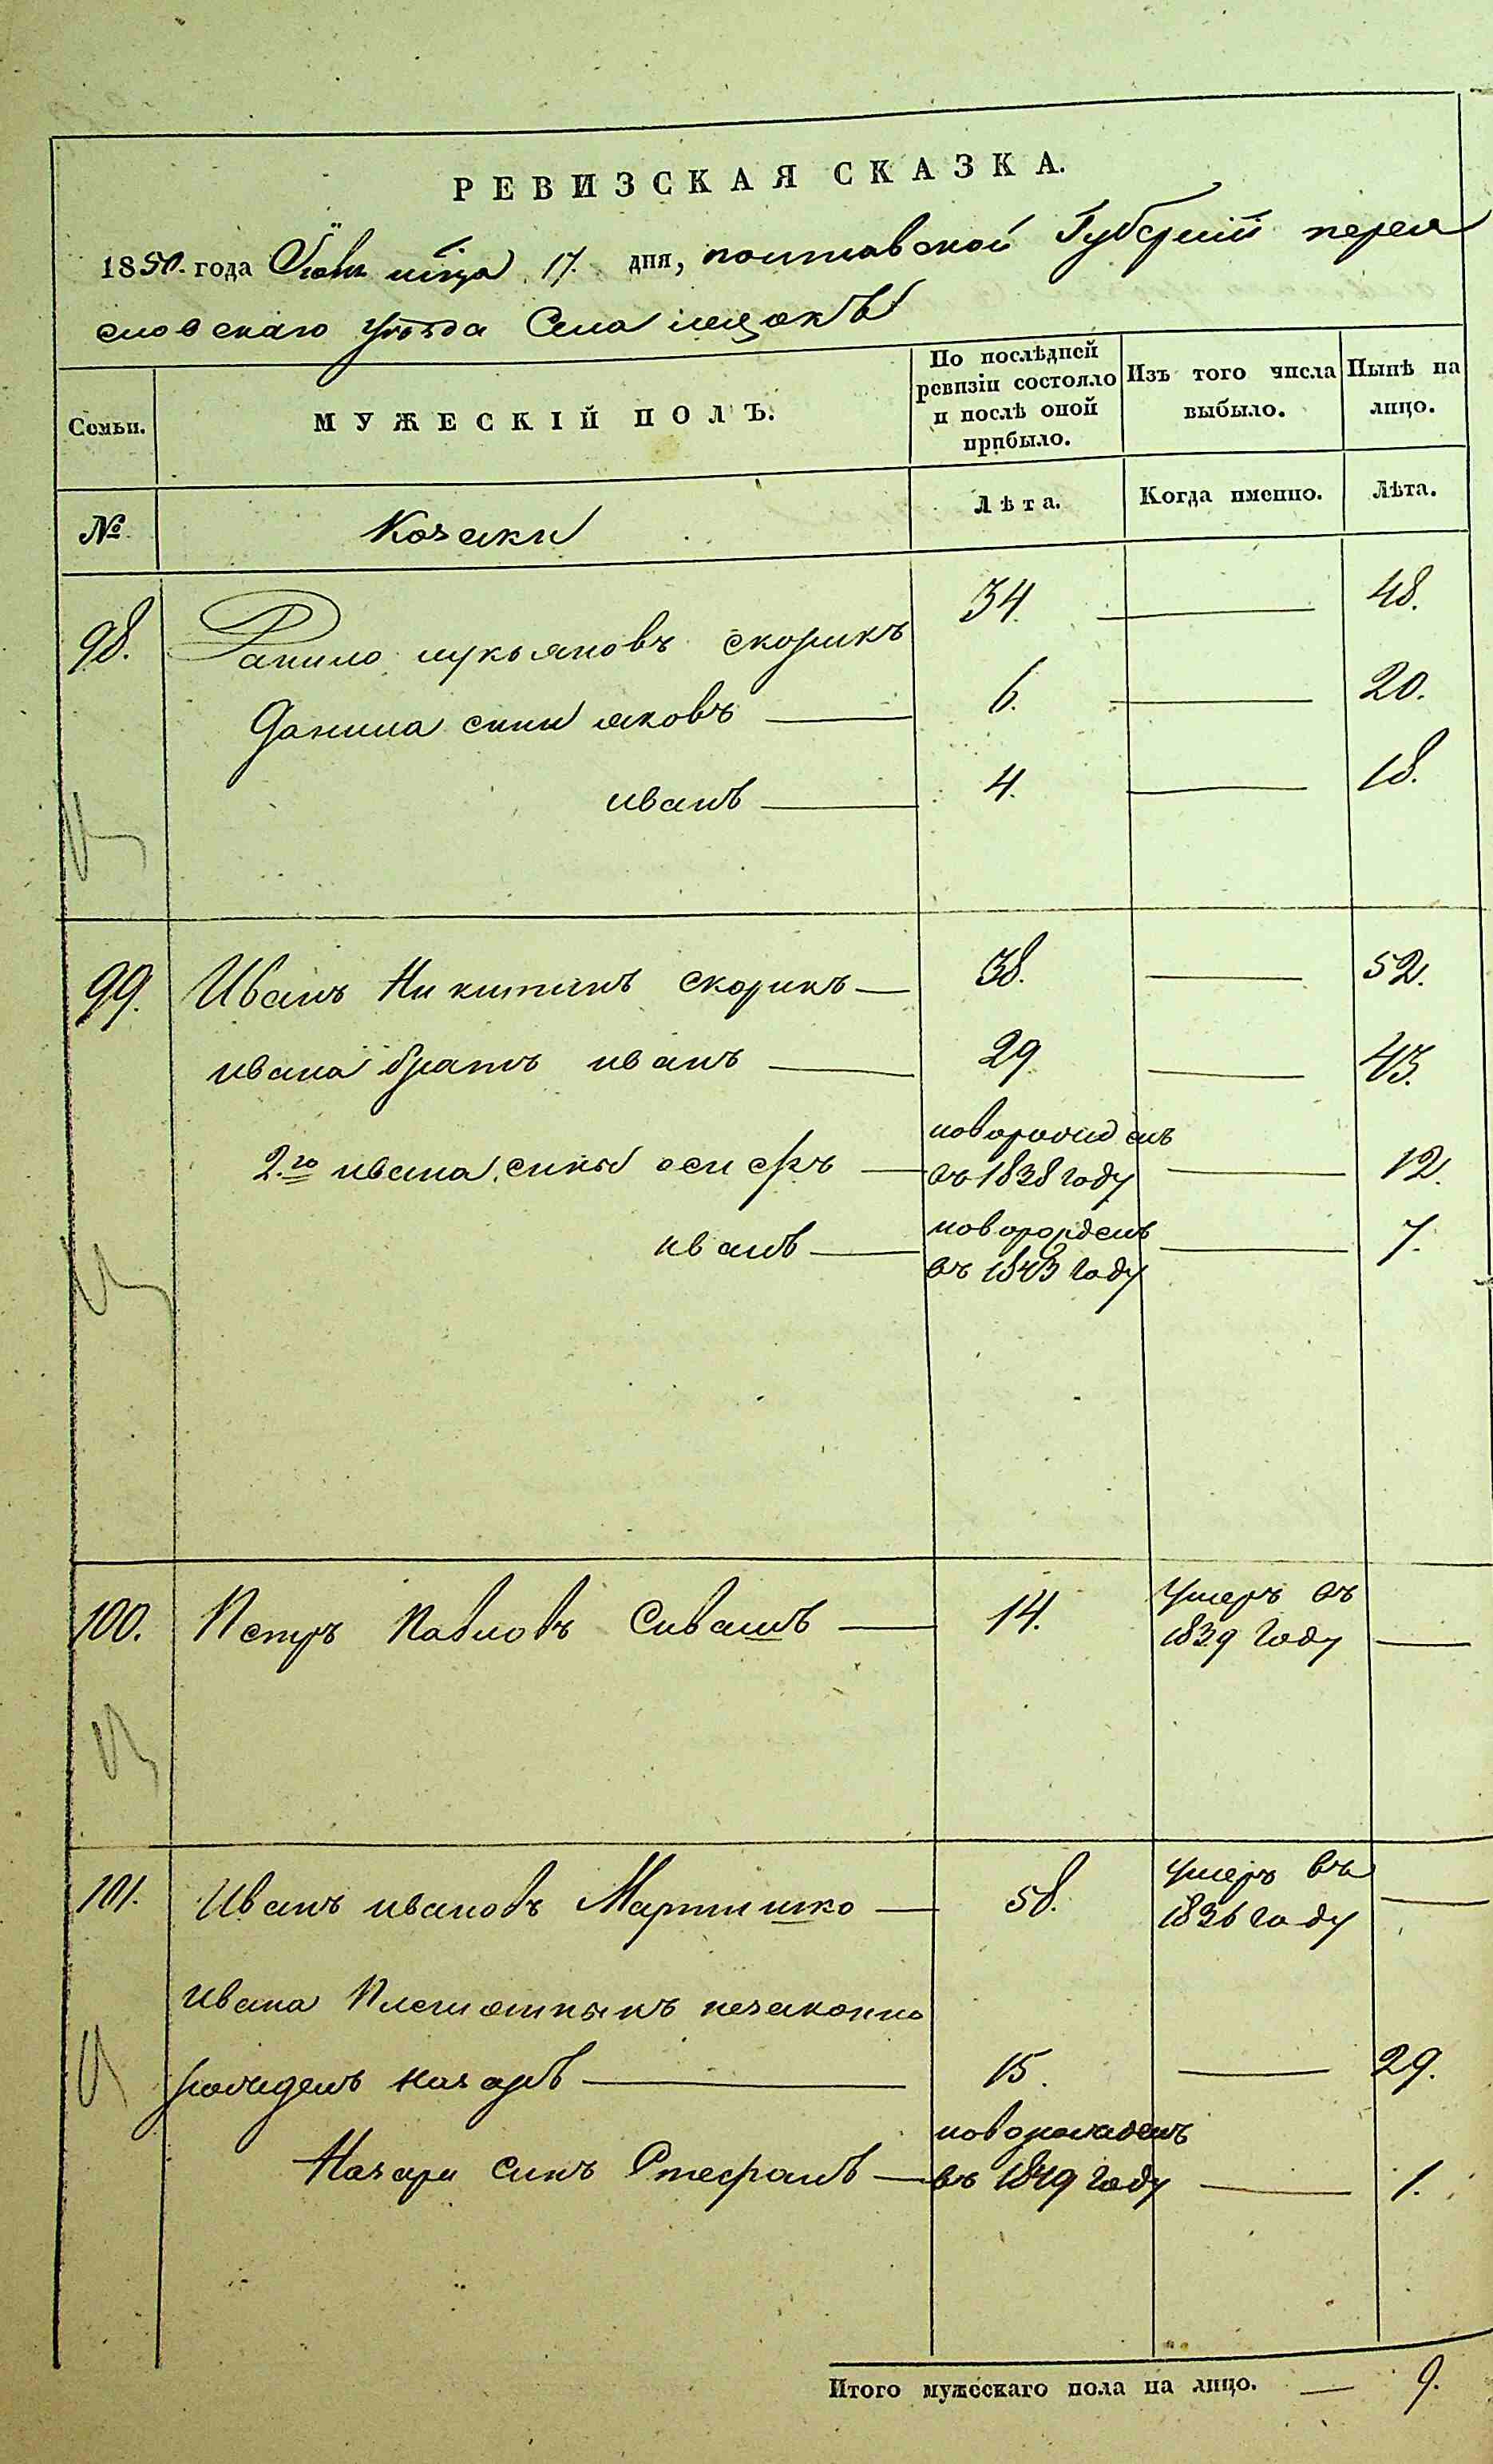 РЕВИЗСКАЯ СКАЗКА.
1850. года Июня мца 17. дня, полтавской Губернiи перея
словскаго уѣзда Села лецокъ
Семьи.
МУЖЕСКIЙ ПОЛЪ.
По послѣдней ревизiи состояло и послѣ оной прибыло.
Изъ того числа выбыло.
Нынѣ на лицо.
№
Козаки
Лѣта.
Когда именно.
Лѣта.
98. Данило лукьяновъ скорикъ 34. 48.
Данила сины яковъ 6. 20.
иванъ 4. 18.
99. Иванъ Никитинъ скорикъ 38. 52.
ивана братъ иванъ 29 43.
новорожденъ
2.го ивана сины осифъ въ 1838 году 12.
новорожденъ
иванъ 7.
въ 1843 году
умеръ въ
100. Петръ Павловъ Сивашъ 14.
1839 году
умеръ въ
101. Иванъ ивановъ Мартишко 58.
1836 году
ивана Племянныкъ незаконно
рожденъ назаръ 15. 29.
новорожденъ
Назара синъ Стефанъ въ 1849 году 1.
Итого мужескаго пола на лицо. 9.